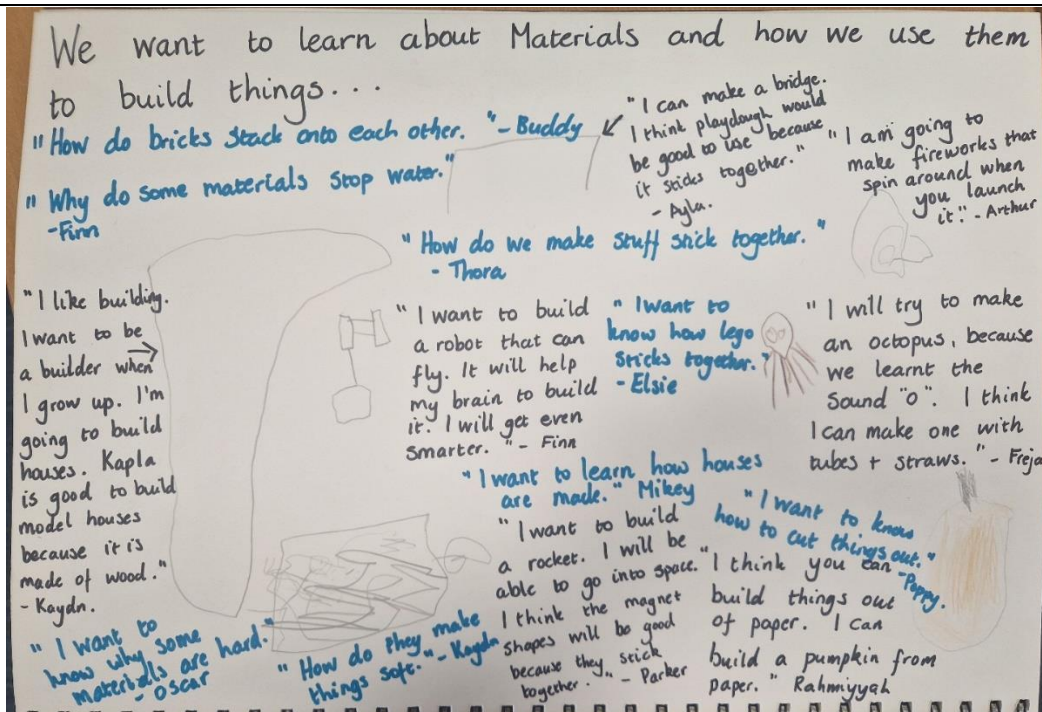 We want to learn about Materials and how we use them
to build things...
"How do bricks stack onto each other. "- Buddy
"I can make a bridge.
I think playdough would
be good to use because
it sticks together."
- Ayla.
"I am going to
make fireworks that
spin around when
you launch
it." - Arthur
"Why do some materials stop water."
-Finn
"How do we make stuff stick together. "
- Thora
"I like building.
I want to be
a builder when
I grow up. I'm
going to build
houses. Kapla
is good to build
model houses
because it is
made of wood."
- Kaydn.
"I want to build
a robot that can
fly. It will help
my brain to build
it. I will get even
smarter. "- Finn
"I want to
know how lego
sticks together."
- Elsie
"I will try to make
an octopus, because
we learnt the
Sound "o". I think
I can make one with
tubes + straws. "- Freja
"I want to learn how houses
are made." Mikey
"I want to know
how to cut things out."
-Poppy.
"I want to build
a rocket. I will be
able to go into space."
I think the magnet
shapes will be good
because they stick
together. " - Parker
"I think you can
build things out
of paper. I can
build a pumpkin from
paper. " Rahmiyyah
"I want to
know why some
materials are hard."
- Oscar
"How do they make
things soft."- Kaydn